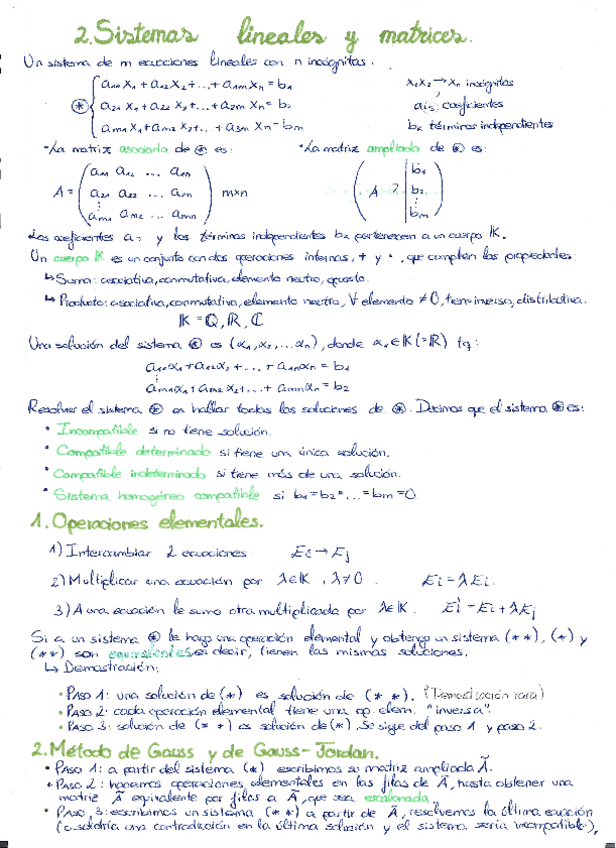 2. Sistemas lineales y matrices.
Un sistema de m ecuaciones lineales con n incógnitas:
a₁₁x₁ + a₁₂x₂ + ... + a₁ₘxₙ = b₁ x₁x₂ → xₙ incógnitas
⊛ a₂₁x₁ + a₂₂x₂ + ... + a₂ₘxₙ = b₂ aᵢⱼ coeficientes
aₘ₁x₁ + aₘ₂x₂ + ... + a₃ₘxₙ = bₘ bₖ términos independientes
· La matriz asociada de ⊛ es: · La matriz ampliada de ⊛ es:
a₁₁ a₁₂ ... a₁ₙ b₁
A = a₂₁ a₂₂ ... a₂ₙ mxn A b₂
aₘ₁ aₘ₂ ... aₘₙ bₘ
Los coeficientes y los términos independientes bₖ pertenecen a un cuerpo K.
Un cuerpo K es un conjunto con dos operaciones internas, + y ·, que cumplen las propiedades:
↳ Suma: asociativa, conmutativa, elemento neutro, opuesto.
↳ Producto: asociativa, conmutativa, elemento neutro, ∀ elemento ≠ 0, tiene inverso, distributiva.
K = Q, R, C
Una solución del sistema ⊛ es (α₁, α₂, ... αₙ), donde α₁ ∈ K (= R) tq:
a₁₁α₁ + a₁₂α₂ + ... + a₁ₙαₙ = b₁
aₘ₁α₁ + aₘ₂α₂ + ... + aₘₙαₙ = b₂
Resolver el sistema ⊛ es hallar todas las soluciones de ⊛. Decimos que el sistema ⊛ es:
· Incompatible si no tiene solución.
· Compatible determinado si tiene una única solución.
· Compatible indeterminado si tiene más de una solución.
· Sistema homogéneo compatible si b₁ = b₂ = ... = bₘ = 0
1. Operaciones elementales.
1) Intercambiar 2 ecuaciones Eᵢ → Eⱼ
2) Multiplicar una ecuación por λ∈K, λ≠0. Eᵢ = λEᵢ.
3) A una ecuación le sumo otra multiplicada por λ∈K. Eᵢ' = Eᵢ + λEⱼ
Si a un sistema ⊛ le hago una operación elemental y obtengo un sistema (**), (*) y
(**) son equivalentes es decir, tienen las mismas soluciones.
↳ Demostración:
· PASO 1: una solución de (*) es solución de (**). (Demostración rara)
· PASO 2: cada operación elemental tiene una op. elem. "inversa".
· PASO 3: solución de (**) es solución de (*). Se sigue del paso 1 y paso 2.
2. Método de Gauss y de Gauss-Jordan.
· PASO 1: a partir del sistema (*) escribimos su matriz ampliada Ã.
· PASO 2: hacemos operaciones elementales en las filas de Ã, hasta obtener una
matriz à equivalente por filas a Ã, que sea escalonada.
· PASO 3: escribimos un sistema (**) a partir de Ã, resolvemos la última ecuación
(o saldría una contradicción en la última solución y el sistema sería incompatible),